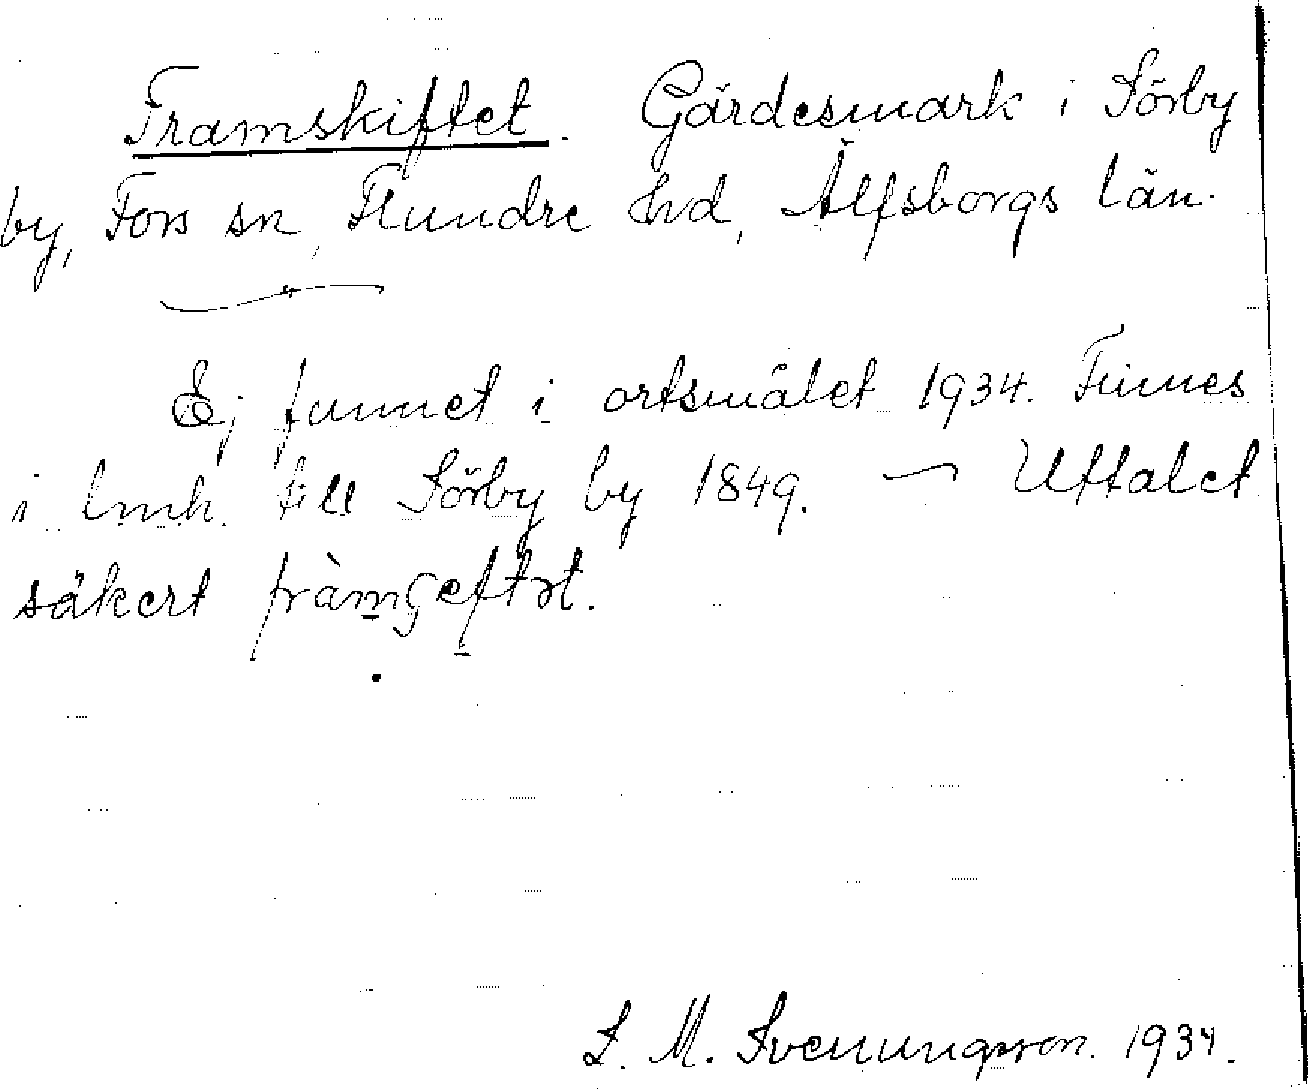 Framskiftet. Gärdesmark i Sörby
by, Fors sn, Flundre hd, Älfsborgs län.
Ej funnet i ortsmålet 1934. Finnes
i lmh. till Sörby by 1849. — Uttalet
säkert
S. M. Svenungsson. 1934.